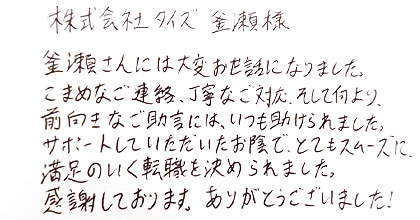 株式会社タイズ 釜瀬様
釜瀬さんには大変お世話になりました。
こまめなご連絡、丁寧なご対応、そして何より、
前向きなご助言には、いつも助けられました。
サポートしていただいたお陰で、とてもスムーズに、
満足のいく転職を決められました。
感謝しております。ありがとうございました!